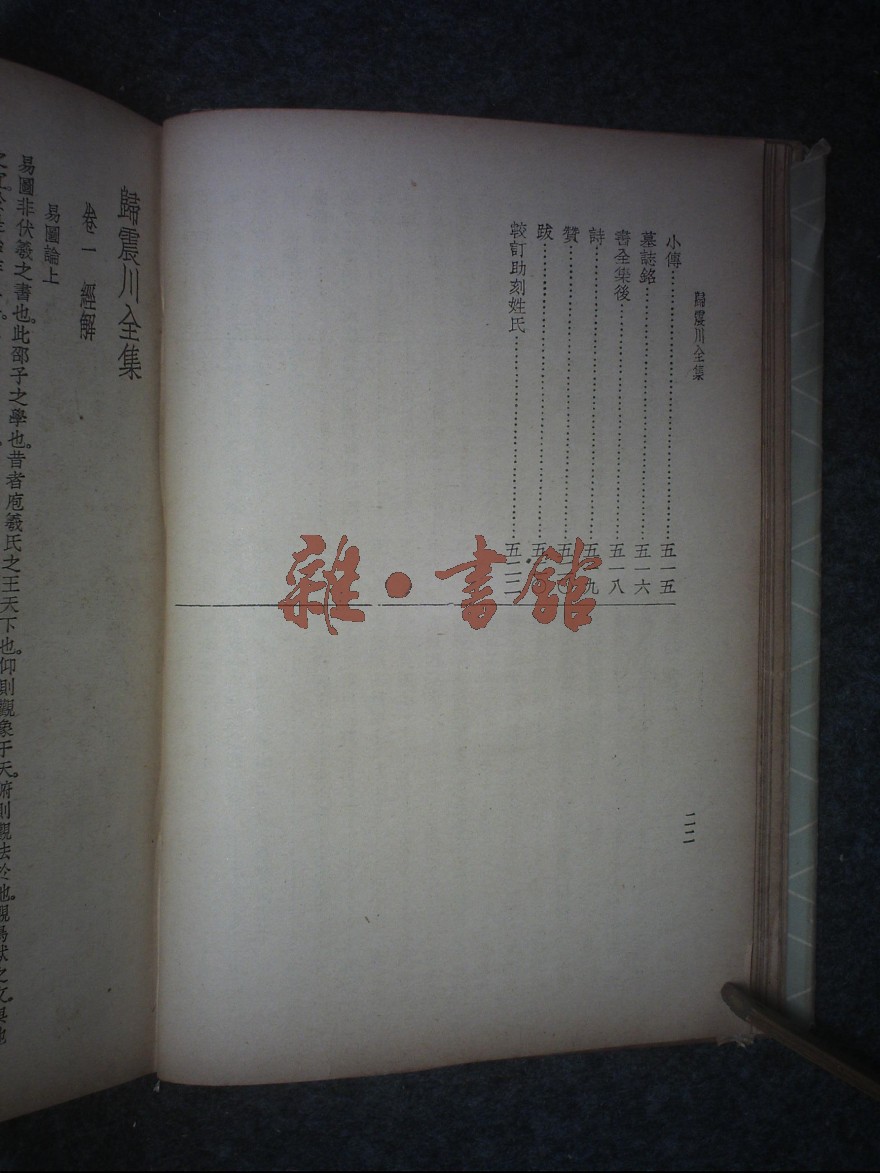 歸震川全集
小傳……五一五
墓誌銘……五一六
書全集後……五一八
詩……五一九
贊……五
跋……五
較訂助刻姓氏……五二二
二二
雜·書館
歸震川全集
卷一 經解
易圖論上
易圖非伏羲之書也。此邵子之學也。昔者庖羲氏之王天下也。仰則觀象于天。俯則觀法於地。觀鳥獸之文。與地